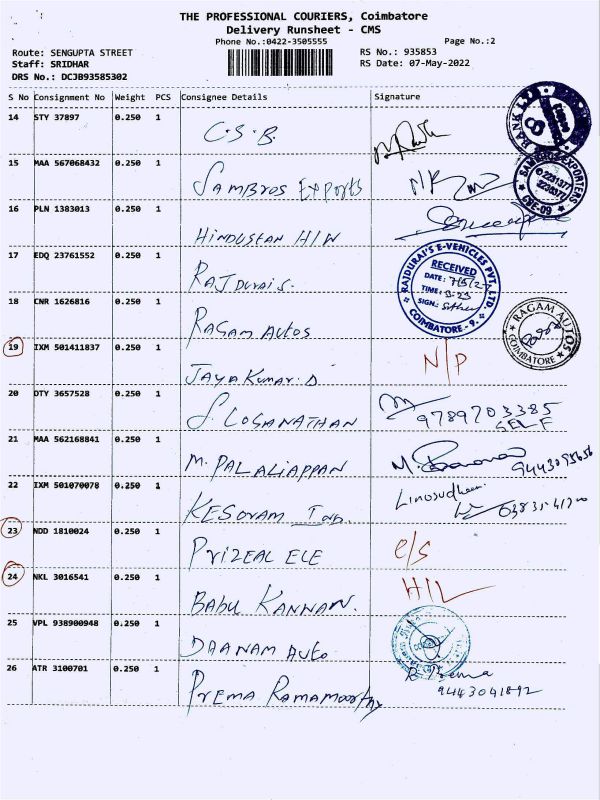 THE PROFESSIONAL COURIERS, Coimbatore
Delivery Runsheet - CMS
Phone No.:0422-3505555 Page No.:2
Route: SENGUPTA STREET RS No.: 935853
Staff: SRIDHAR RS Date: 07-May-2022
DRS No.: DCJB93585302
S No Consignment No Weight PCS Consignee Details Signature
14 STY 37897 0.250 1
C.S.B.
15 MAA 567068432 0.250 1
SAMBROS EXPORTS
16 PLN 1383013 0.250 1
HINDUSTAN H/W
17 EDQ 23761552 0.250 1
RAJDURAI S.
18 CNR 1626816 0.250 1
RAGAM AUTOS
19 IXM 501411837 0.250 1
JAYAKUMAR.D N/P
20 DTY 3657528 0.250 1
S. LOGANATHAN 9789703385
SELF
21 MAA 562168841 0.250 1
M. PALALIAPPAN M.
22 IXM 501070078 0.250 1
KESORAM
23 NDD 1810024 0.250 1
PRIZEAL ELE
24 NKL 3016541 0.250 1
BABU KANNAN. H/L
25 VPL 938900948 0.250 1
DAANAM AUTO
26 ATR 3100701 0.250 1
PREMA RAMAMOORTHY R. Prema
9443041892
BANK LTD
SAMBROS EXPORTERS
CBE-09
RAJDURAI'S E-VEHICLES PVT. LTD.
RECEIVED
DATE:
TIME:
SIGN.:
COIMBATORE - 9.
RAGAM AUTOS
COIMBATORE